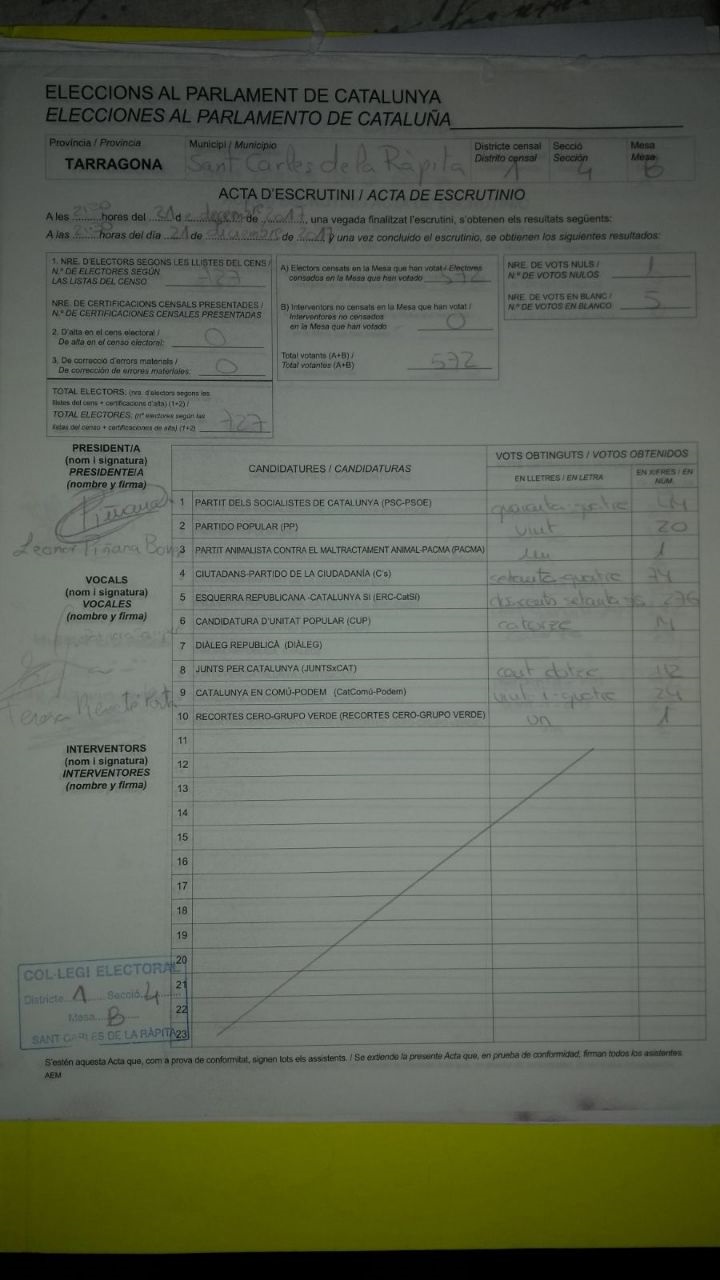 ELECCIONS AL PARLAMENT DE CATALUNYA
ELECCIONES AL PARLAMENTO DE CATALUÑA
Província / Provincia
TARRAGONA
Municipi / Municipio
Sant Carles de la Ràpita
Districte censal
Distrito censal
1
Secció
Sección
4
Mesa
Mesa
B
ACTA D'ESCRUTINI / ACTA DE ESCRUTINIO
A les hores del 21 d e desembre de 2017, una vegada finalitzat l'escrutini, s'obtenen els resultats següents:
A las horas del día 21 de diciembre de 2017 y una vez concluido el escrutinio, se obtienen los siguientes resultados:
1. NRE. D'ELECTORS SEGONS LES LLISTES DEL CENS /
N.º DE ELECTORES SEGÚN
LAS LISTAS DEL CENSO 727
NRE. DE CERTIFICACIONS CENSALS PRESENTADES /
N.º DE CERTIFICACIONES CENSALES PRESENTADAS
2. D'alta en el cens electoral /
De alta en el censo electoral: 0
3. De correcció d'errors materials /
De corrección de errores materiales: 0
TOTAL ELECTORS: (nre. d'electors segons les
llistes del cens + certificacions d'alta) (1+2) /
TOTAL ELECTORES: (nº electores según las
listas del censo + certificaciones de alta) (1+2) 727
A) Electors censats en la Mesa que han votat / Electores
censados en la Mesa que han votado 572
B) Interventors no censats en la Mesa que han votat /
Interventores no censados
en la Mesa que han votado 0
Total votants (A+B) /
Total votantes (A+B) 572
NRE. DE VOTS NULS /
N.º DE VOTOS NULOS 1
NRE. DE VOTS EN BLANC /
N.º DE VOTOS EN BLANCO 5
PRESIDENT/A
(nom i signatura)
PRESIDENTE/A
(nombre y firma)
Piñana
Leonor Piñana
VOCALS
(nom i signatura)
VOCALES
(nombre y firma)
Teresa
INTERVENTORS
(nom i signatura)
INTERVENTORES
(nombre y firma)
CANDIDATURES / CANDIDATURAS
VOTS OBTINGUTS / VOTOS OBTENIDOS
EN LLETRES / EN LETRA
EN XIFRES / EN NÚM.
1 PARTIT DELS SOCIALISTES DE CATALUNYA (PSC-PSOE) quaranta-quatre 44
2 PARTIDO POPULAR (PP) vint 20
3 PARTIT ANIMALISTA CONTRA EL MALTRACTAMENT ANIMAL-PACMA (PACMA) un 1
4 CIUTADANS-PARTIDO DE LA CIUDADANÍA (C's) setanta-quatre 74
5 ESQUERRA REPUBLICANA -CATALUNYA SÍ (ERC-CatSí) 276
6 CANDIDATURA D'UNITAT POPULAR (CUP) catorze 14
7 DIÀLEG REPUBLICÀ (DIÀLEG)
8 JUNTS PER CATALUNYA (JUNTSxCAT) cent dotze 112
9 CATALUNYA EN COMÚ-PODEM (CatComú-Podem) vint-i-quatre 24
10 RECORTES CERO-GRUPO VERDE (RECORTES CERO-GRUPO VERDE) un 1
11
12
13
14
15
16
17
18
19
20
21
22
23
COL·LEGI ELECTORAL
Districte 1 Secció 4
Mesa B
SANT CARLES DE LA RÀPITA
S'estén aquesta Acta que, com a prova de conformitat, signen tots els assistents. / Se extiende la presente Acta que, en prueba de conformidad, firman todos los asistentes.
AEM